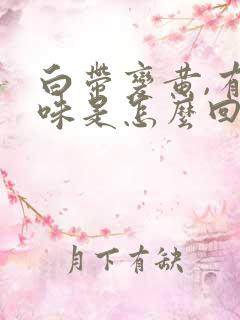 白帶變黃,有
味是怎麼回
月下有缺